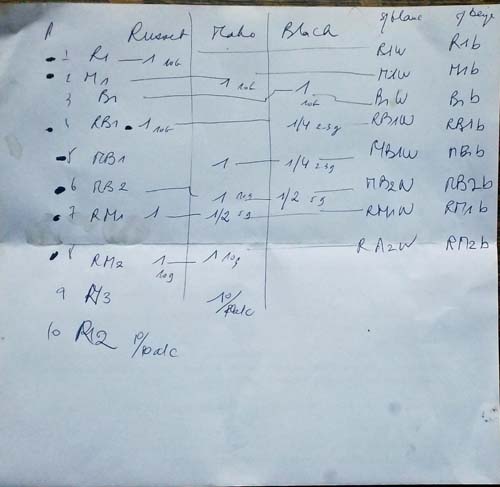 Russet Maho Black s/blanc s/beige
1 R1 1 10g R1W R1b
2 M1 1 10g M1W M1b
3 B1 1 10g B1W B1b
4 RB1 1 10g 1/4 2.5g RB1W RB1b
5 MB1 1 1/4 2.5g MB1W MB1b
6 MB2 1 10g 1/2 5g MB2W MB2b
7 RM1 1 1/2 5g RM1W RM1b
8 RM2 1 10g 1 10g RM2W RM2b
9 10/
10 R12